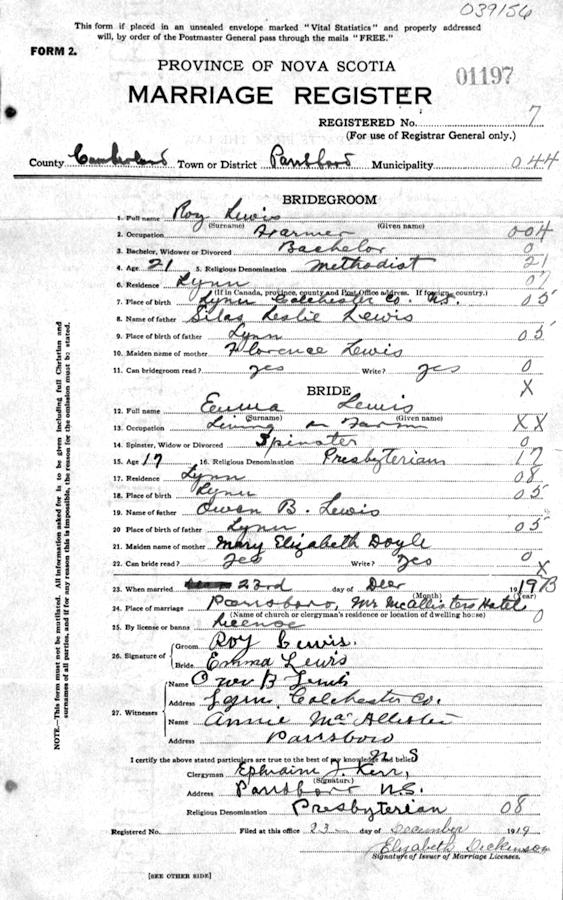 039156
This form if placed in an unsealed envelope marked "Vital Statistics" and properly addressed
will, by order of the Postmaster General pass through the mails "FREE."
FORM 2.
PROVINCE OF NOVA SCOTIA
01197
MARRIAGE REGISTER
REGISTERED No. 7
(For use of Registrar General only.)
County Cumberland Town or District Parrsboro Municipality 044
BRIDEGROOM
1. Full name Roy Lewis
(Surname) (Given name)
2. Occupation Farmer 004
3. Bachelor, Widower or Divorced Bachelor 0
4. Age 21 5. Religious Denomination Methodist 21
6. Residence Lynn 07
(If in Canada, province, county and Post Office address. If foreign, country.)
7. Place of birth Lynn Colchester Co. N.S. 05
8. Name of father Silas Leslie Lewis
9. Place of birth of father Lynn 05
10. Maiden name of mother Florence Lewis
11. Can bridegroom read? yes Write? yes 0
BRIDE X
12. Full name Emma Lewis
(Surname) (Given name)
13. Occupation Living on Farm XX
14. Spinster, Widow or Divorced Spinster 0
15. Age 17 16. Religious Denomination Presbyterian 17
17. Residence Lynn 08
18. Place of birth Lynn 05
19. Name of father Owen B. Lewis
20. Place of birth of father Lynn 05
21. Maiden name of mother Mary Elizabeth Doyle
22. Can bride read? Yes Write? Yes 0
X
23. When married 23rd day of Decr 19
(Month) (Year)
24. Place of marriage Parrsboro, Mr McAllisters Hotel
(Name of church or clergyman's residence or location of dwelling house) 0
25. By license or banns License
26. Signature of Groom Roy Lewis.
Bride Emma Lewis
27. Witnesses
Name Owen B Lewis
Address Lynn, Colchester Co.
Name Annie MacAllister
Address Parrsboro
N S
I certify the above stated particulars are true to the best of my knowledge and belief
Clergyman Ephraim J. Kerr,
(Signature)
Address Parrsboro N.S.
Religious Denomination Presbyterian 08
Registered No. Filed at this office 23 day of December 1919
Elizabeth Dickinson
Signature of Issuer of Marriage Licenses.
[SEE OTHER SIDE]
NOTE.—This form must not be mutilated. All information asked for is to be given including full Christian and
surnames of all parties, and if for any reason this is impossible, the reason for the omission must be stated.